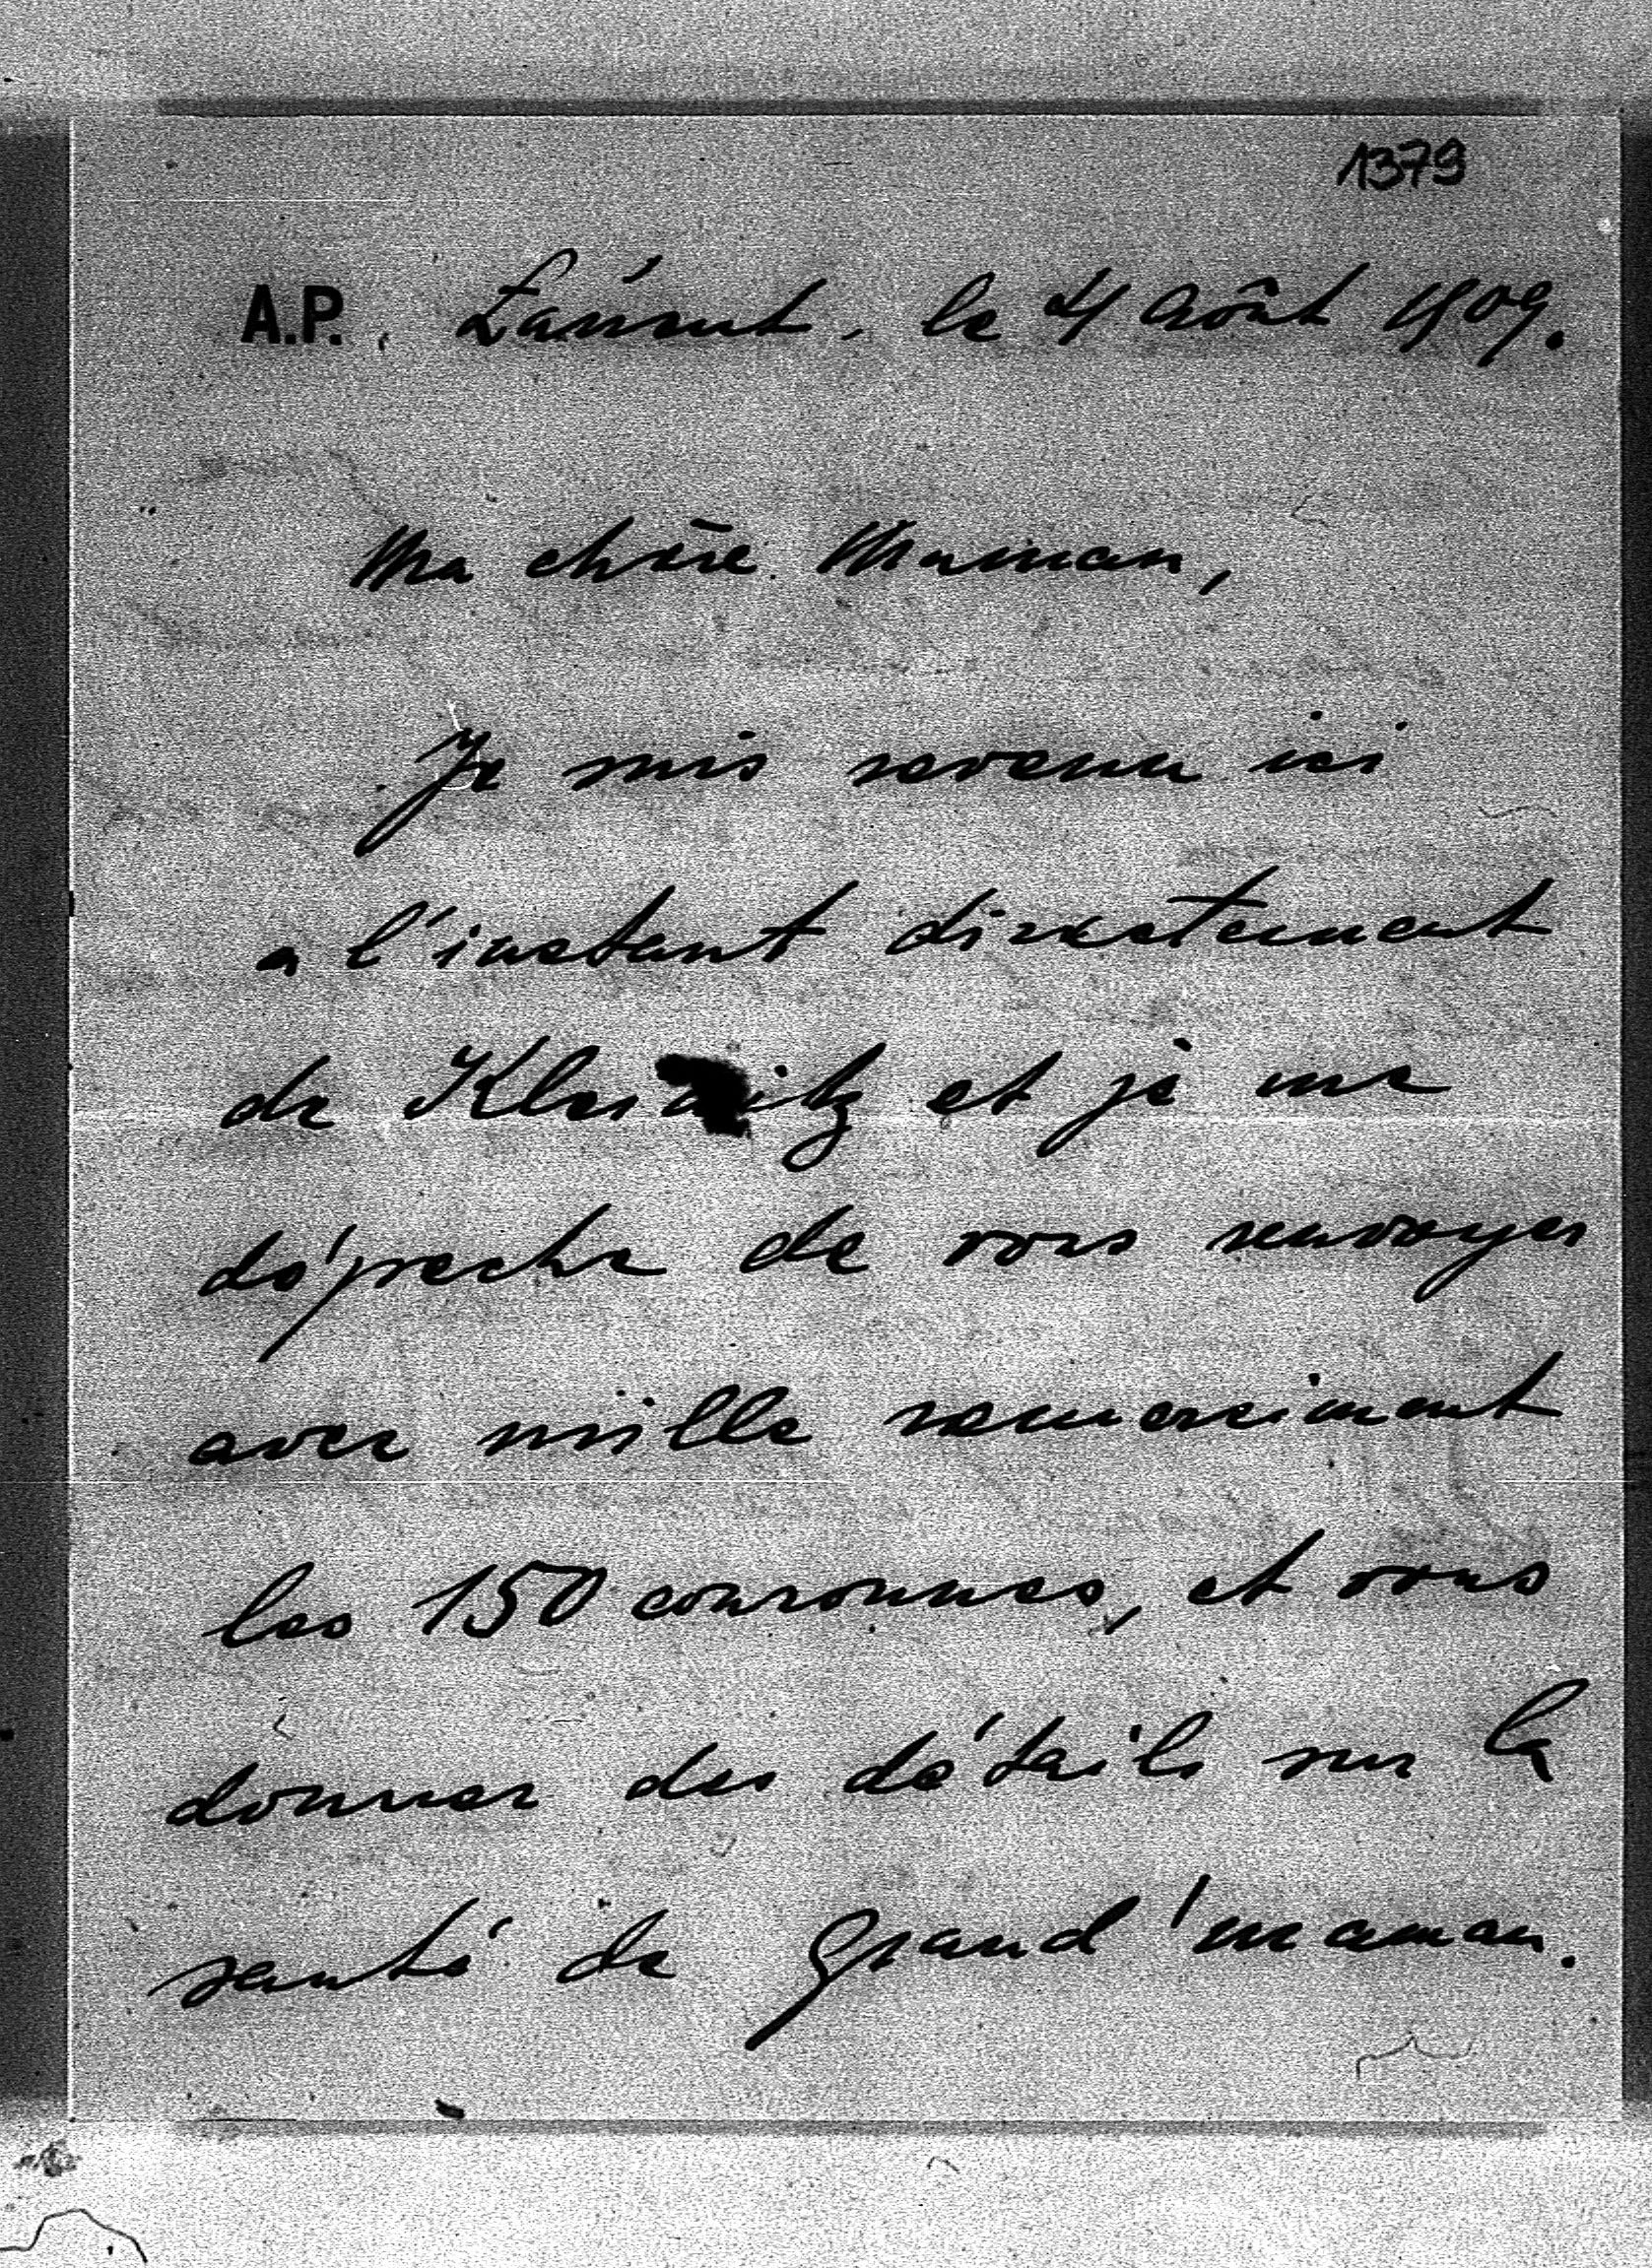 1379
A.P. Łańcut, le 4 Août 1909.
Ma chère Maman,
Je suis revenu ici
a l'instant directement
de et je me
dépeche de vous renvoyer
avec mille remerciment
les 150 couronnes, et vous
donner des détails sur la
santé de Grand'maman.